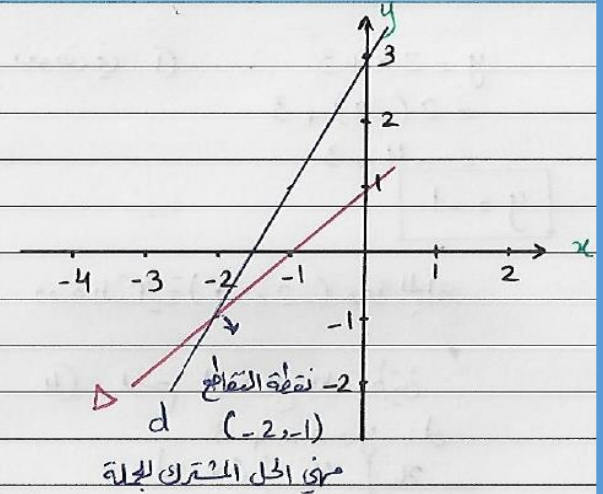 y
3
2
1
x
-4 -3 -2 -1 1 2
-1
نقطة التقاطع -2
Δ
d
(-2,-1)
فهي الحل المشترك للجملة